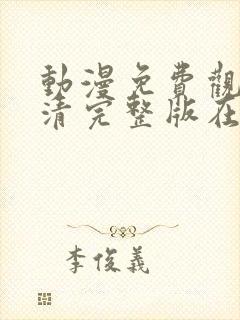 動漫免費觀
清完整版在
李俊義